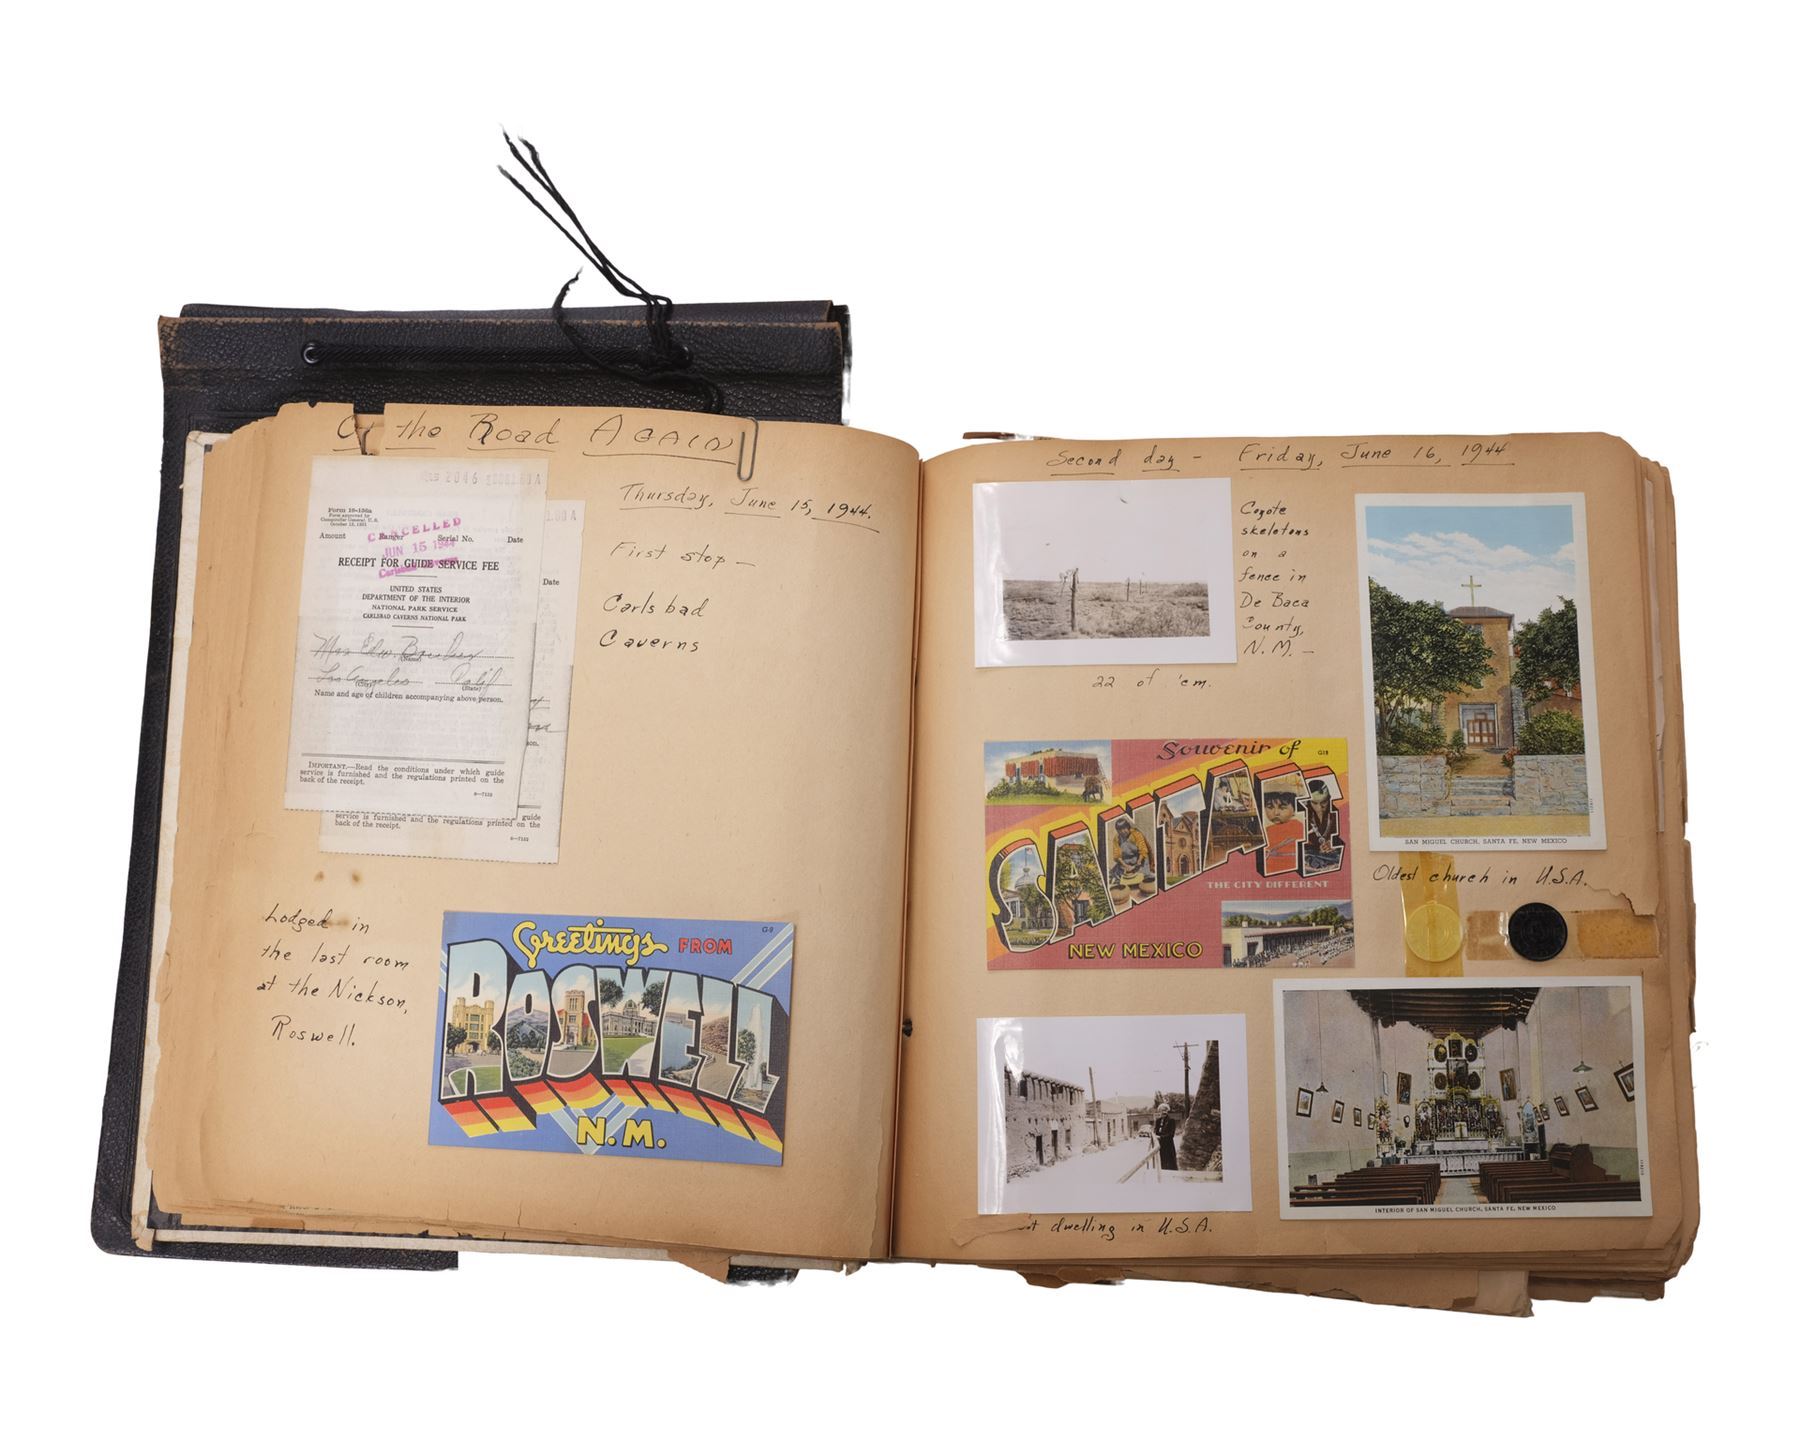 the Road AGAIN
Thursday, June 15, 1944.
First stop —
Carlsbad
Caverns
2046
Form 10-156a
Form approved by
Comptroller General, U. S.
October 13, 1931
Amount Ranger Serial No. Date
CANCELLED
JUN 15 1944
RECEIPT FOR GUIDE SERVICE FEE
UNITED STATES
DEPARTMENT OF THE INTERIOR
NATIONAL PARK SERVICE
CARLSBAD CAVERNS NATIONAL PARK
Mrs Edw.
(Name)
Los Angeles Calif
(City) (State)
Name and age of children accompanying above person.
IMPORTANT.—Read the conditions under which guide
service is furnished and the regulations printed on the
back of the receipt.
6—7132
1.00 A
Date
son.
guide
service is furnished and the regulations printed on the
back of the receipt.
6—7132
Lodged in
the last room
at the Nickson,
Roswell.
Greetings FROM
G-9
ROSWELL
N.M.
Second day — Friday, June 16, 1944
Coyote
skeletons
on a
fence in
De Baca
County,
N.M. —
22 of 'em.
SAN MIGUEL CHURCH, SANTA FE, NEW MEXICO
Oldest church in U.S.A.
Souvenir of
G18
SANTA FE
THE CITY DIFFERENT
NEW MEXICO
dwelling in U.S.A.
INTERIOR OF SAN MIGUEL CHURCH, SANTA FE, NEW MEXICO